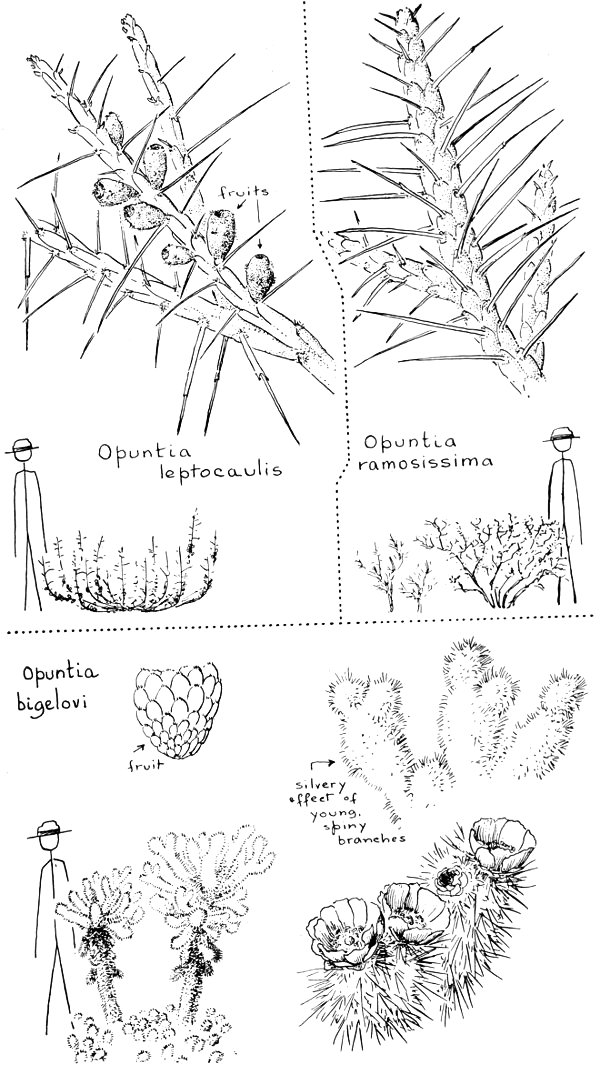 fruits
Opuntia
leptocaulis
Opuntia
ramosissima
Opuntia
bigelovi
fruit
silvery
effect of
young,
spiny
branches